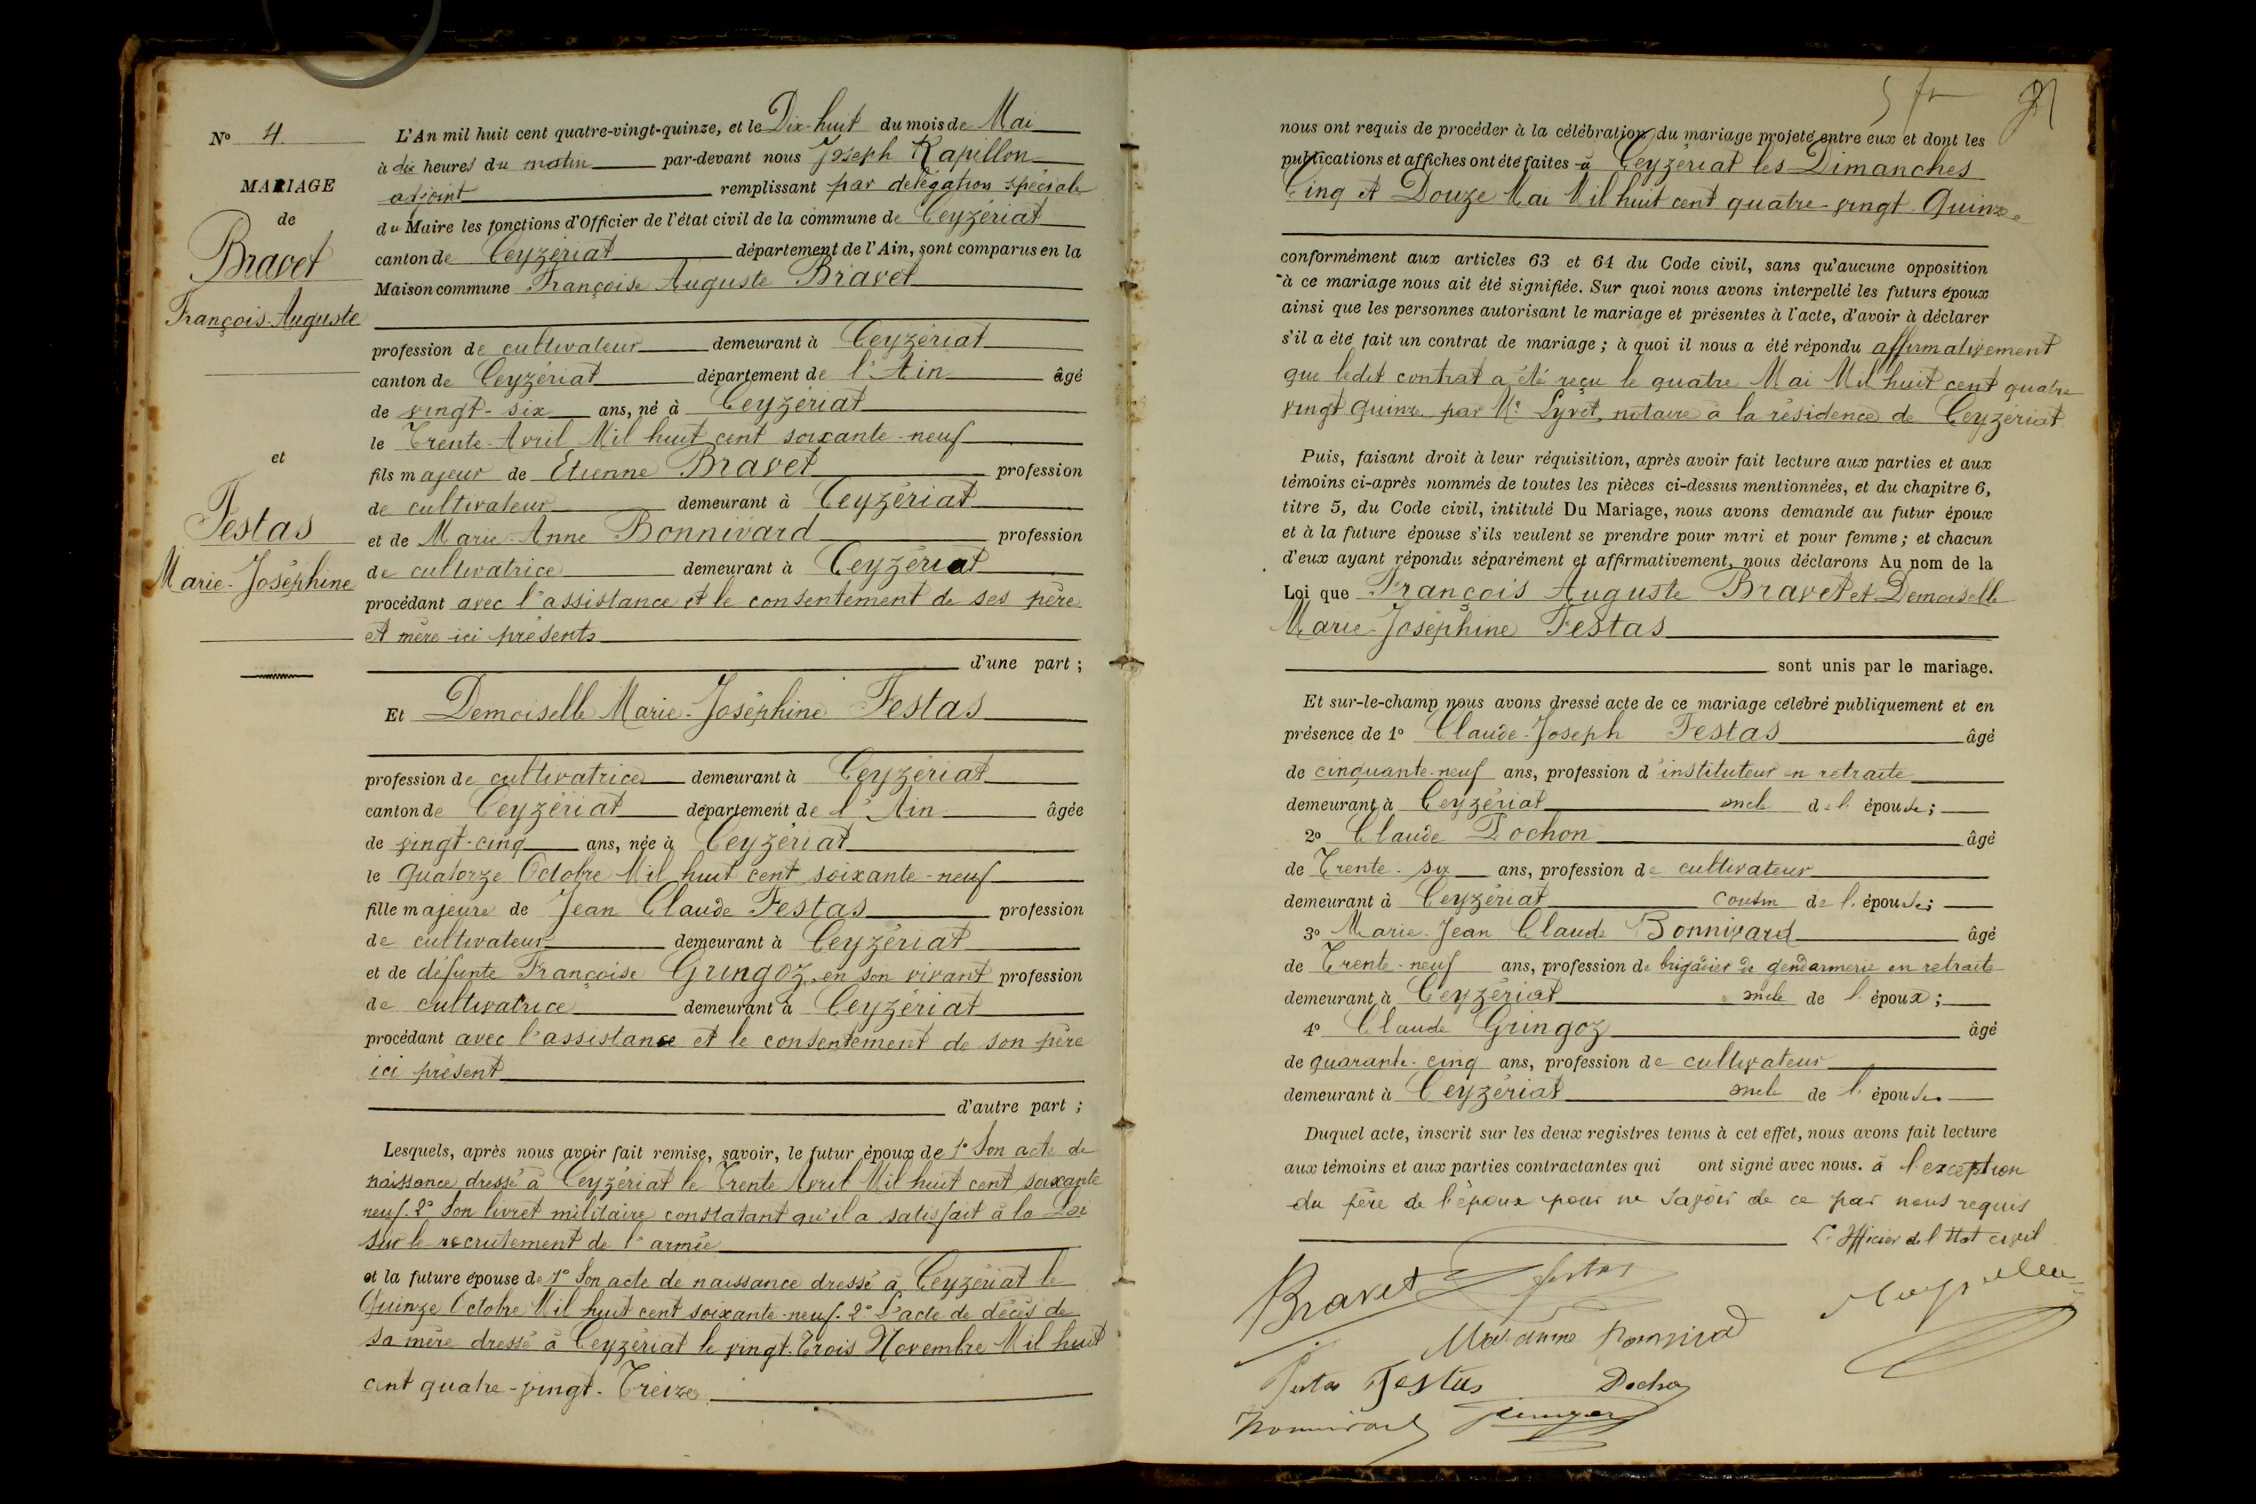 N° 4
MARIAGE
de
Bravet
François-Auguste
et
Festas
Marie-Joséphine
L'An mil huit cent quatre-vingt-quinze, et le Dix-huit du mois de Mai
à dix heures du matin par-devant nous Joseph Rapillon
adjoint remplissant par délégation spéciale
du Maire les fonctions d'Officier de l'état civil de la commune de Ceyzériat
canton de Ceyzériat département de l'Ain, sont comparus en la
Maison commune Françoise Auguste Bravet
profession de cultivateur demeurant à Ceyzériat
canton de Ceyzériat département de l'Ain âgé
de vingt-six ans, né à Ceyzériat
le Trente Avril Mil huit cent soixante-neuf
fils majeur de Etienne Bravet profession
de cultivateur demeurant à Ceyzériat
et de Marie-Anne Bonnivard profession
de cultivatrice demeurant à Ceyzériat
procédant avec l'assistance et le consentement de ses père
et mère ici présents
d'une part ;
Et Demoiselle Marie-Joséphine Festas
profession de cultivatrice demeurant à Ceyzériat
canton de Ceyzériat département de l'Ain âgée
de vingt-cinq ans, née à Ceyzériat
le quatorze Octobre Mil huit cent soixante-neuf
fille majeure de Jean Claude Festas profession
de cultivateur demeurant à Ceyzériat
et de défunte Françoise Gringoz en son vivant profession
de cultivatrice demeurant à Ceyzériat
procédant avec l'assistance et le consentement de son père
ici présent
d'autre part ;
Lesquels, après nous avoir fait remise, savoir, le futur époux de 1° Son acte de
naissance dressé à Ceyzériat le Trente Avril Mil huit cent soixante
neuf. 2° Son livret militaire constatant qu'il a satisfait à la Loi
sur le recrutement de l'armée
et la future épouse de 1° Son acte de naissance dressé à Ceyzériat le
Quinze Octobre Mil huit cent soixante-neuf. 2° L'acte de décès de
sa mère dressé à Ceyzériat le vingt-Trois Novembre Mil huit
cent quatre-vingt-Treize
nous ont requis de procéder à la célébration du mariage projeté entre eux et dont les
publications et affiches ont été faites à Ceyzériat les Dimanches
Cinq et Douze Mai Mil huit cent quatre-vingt-Quinze
conformément aux articles 63 et 64 du Code civil, sans qu'aucune opposition
à ce mariage nous ait été signifiée. Sur quoi nous avons interpellé les futurs époux
ainsi que les personnes autorisant le mariage et présentes à l'acte, d'avoir à déclarer
s'il a été fait un contrat de mariage ; à quoi il nous a été répondu affirmativement
que ledit contrat a été reçu le quatre Mai Mil huit cent quatre
vingt quinze par Me Lyvet, notaire à la résidence de Ceyzériat
Puis, faisant droit à leur réquisition, après avoir fait lecture aux parties et aux
témoins ci-après nommés de toutes les pièces ci-dessus mentionnées, et du chapitre 6,
titre 5, du Code civil, intitulé Du Mariage, nous avons demandé au futur époux
et à la future épouse s'ils veulent se prendre pour mari et pour femme ; et chacun
d'eux ayant répondu séparément et affirmativement, nous déclarons Au nom de la
Loi que François Auguste Bravet et Demoiselle
Marie-Joséphine Festas
sont unis par le mariage.
Et sur-le-champ nous avons dressé acte de ce mariage célébré publiquement et en
présence de 1° Claude-Joseph Festas âgé
de cinquante-neuf ans, profession d'instituteur en retraite
demeurant à Ceyzériat oncle de l'épouse ;
2° Claude Dochon âgé
de Trente-six ans, profession de cultivateur
demeurant à Ceyzériat cousin de l'épouse ;
3° Marie-Jean Claude Bonnivard âgé
de Trente-neuf ans, profession de brigadier de gendarmerie en retraite
demeurant à Ceyzériat oncle de l'époux ;
4° Claude Gringoz âgé
de quarante-cinq ans, profession de cultivateur
demeurant à Ceyzériat oncle de l'épouse.
Duquel acte, inscrit sur les deux registres tenus à cet effet, nous avons fait lecture
aux témoins et aux parties contractantes qui ont signé avec nous. à l'exception
du père de l'époux pour ne savoir de ce par nous requis
L'Officier de l'Etat civil
Bravet festas
Festas Festas